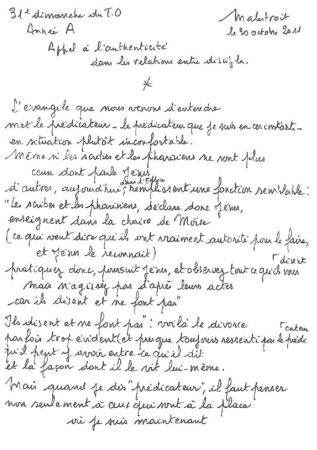 31e dimanche du T.O
Malestroit
Année A
le 30 octobre 2011
Appel à l'authenticité
dans les relations entre disciples.
*
L'évangile que nous venons d'entendre
met le prédicateur - le prédicateur que je suis en ces instants -
en situation plutôt inconfortable.
Même si les scribes et les pharisiens ne sont plus
ceux dont parle Jésus
d'autres, aujourd'hui, dans l'Eglise remplissent une fonction semblable :
"les scribes et les pharisiens, déclare donc Jésus,
enseignent dans la chaire de Moïse
(ce qui veut dire qu'ils ont vraiment autorité pour le faire,
et Jésus le reconnaît)
pratiquez donc, poursuit Jésus, et observez tout ce qu'ils vous disent
mais n'agissez pas d'après leurs actes
car ils disent et ne font pas"
Ils disent et ne font pas" : voilà le divorce
parfois trop évident (et presque toujours ressenti par le prédicateur
qu'il peut y avoir entre ce qu'il dit
et la façon dont il le vit lui-même.
Mais quand je dis "prédicateur", il faut penser
non seulement à ceux qui sont à la place
où je suis maintenant